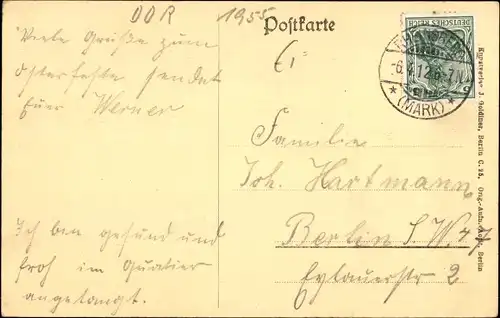 DDR 1955
Postkarte
Viele Grüße zum
Osterfeste sendet
Euer Werner
Ich bin gesund und
froh im Quatier
angelangt.
DEUTSCHES REICH
-6.4.12.6-7N.
* (MARK) *
Familie
Joh. Hartmann
Berlin S.W 47
Eylauerstr 2
J. Goldiner, Berlin C. 25.
Berlin